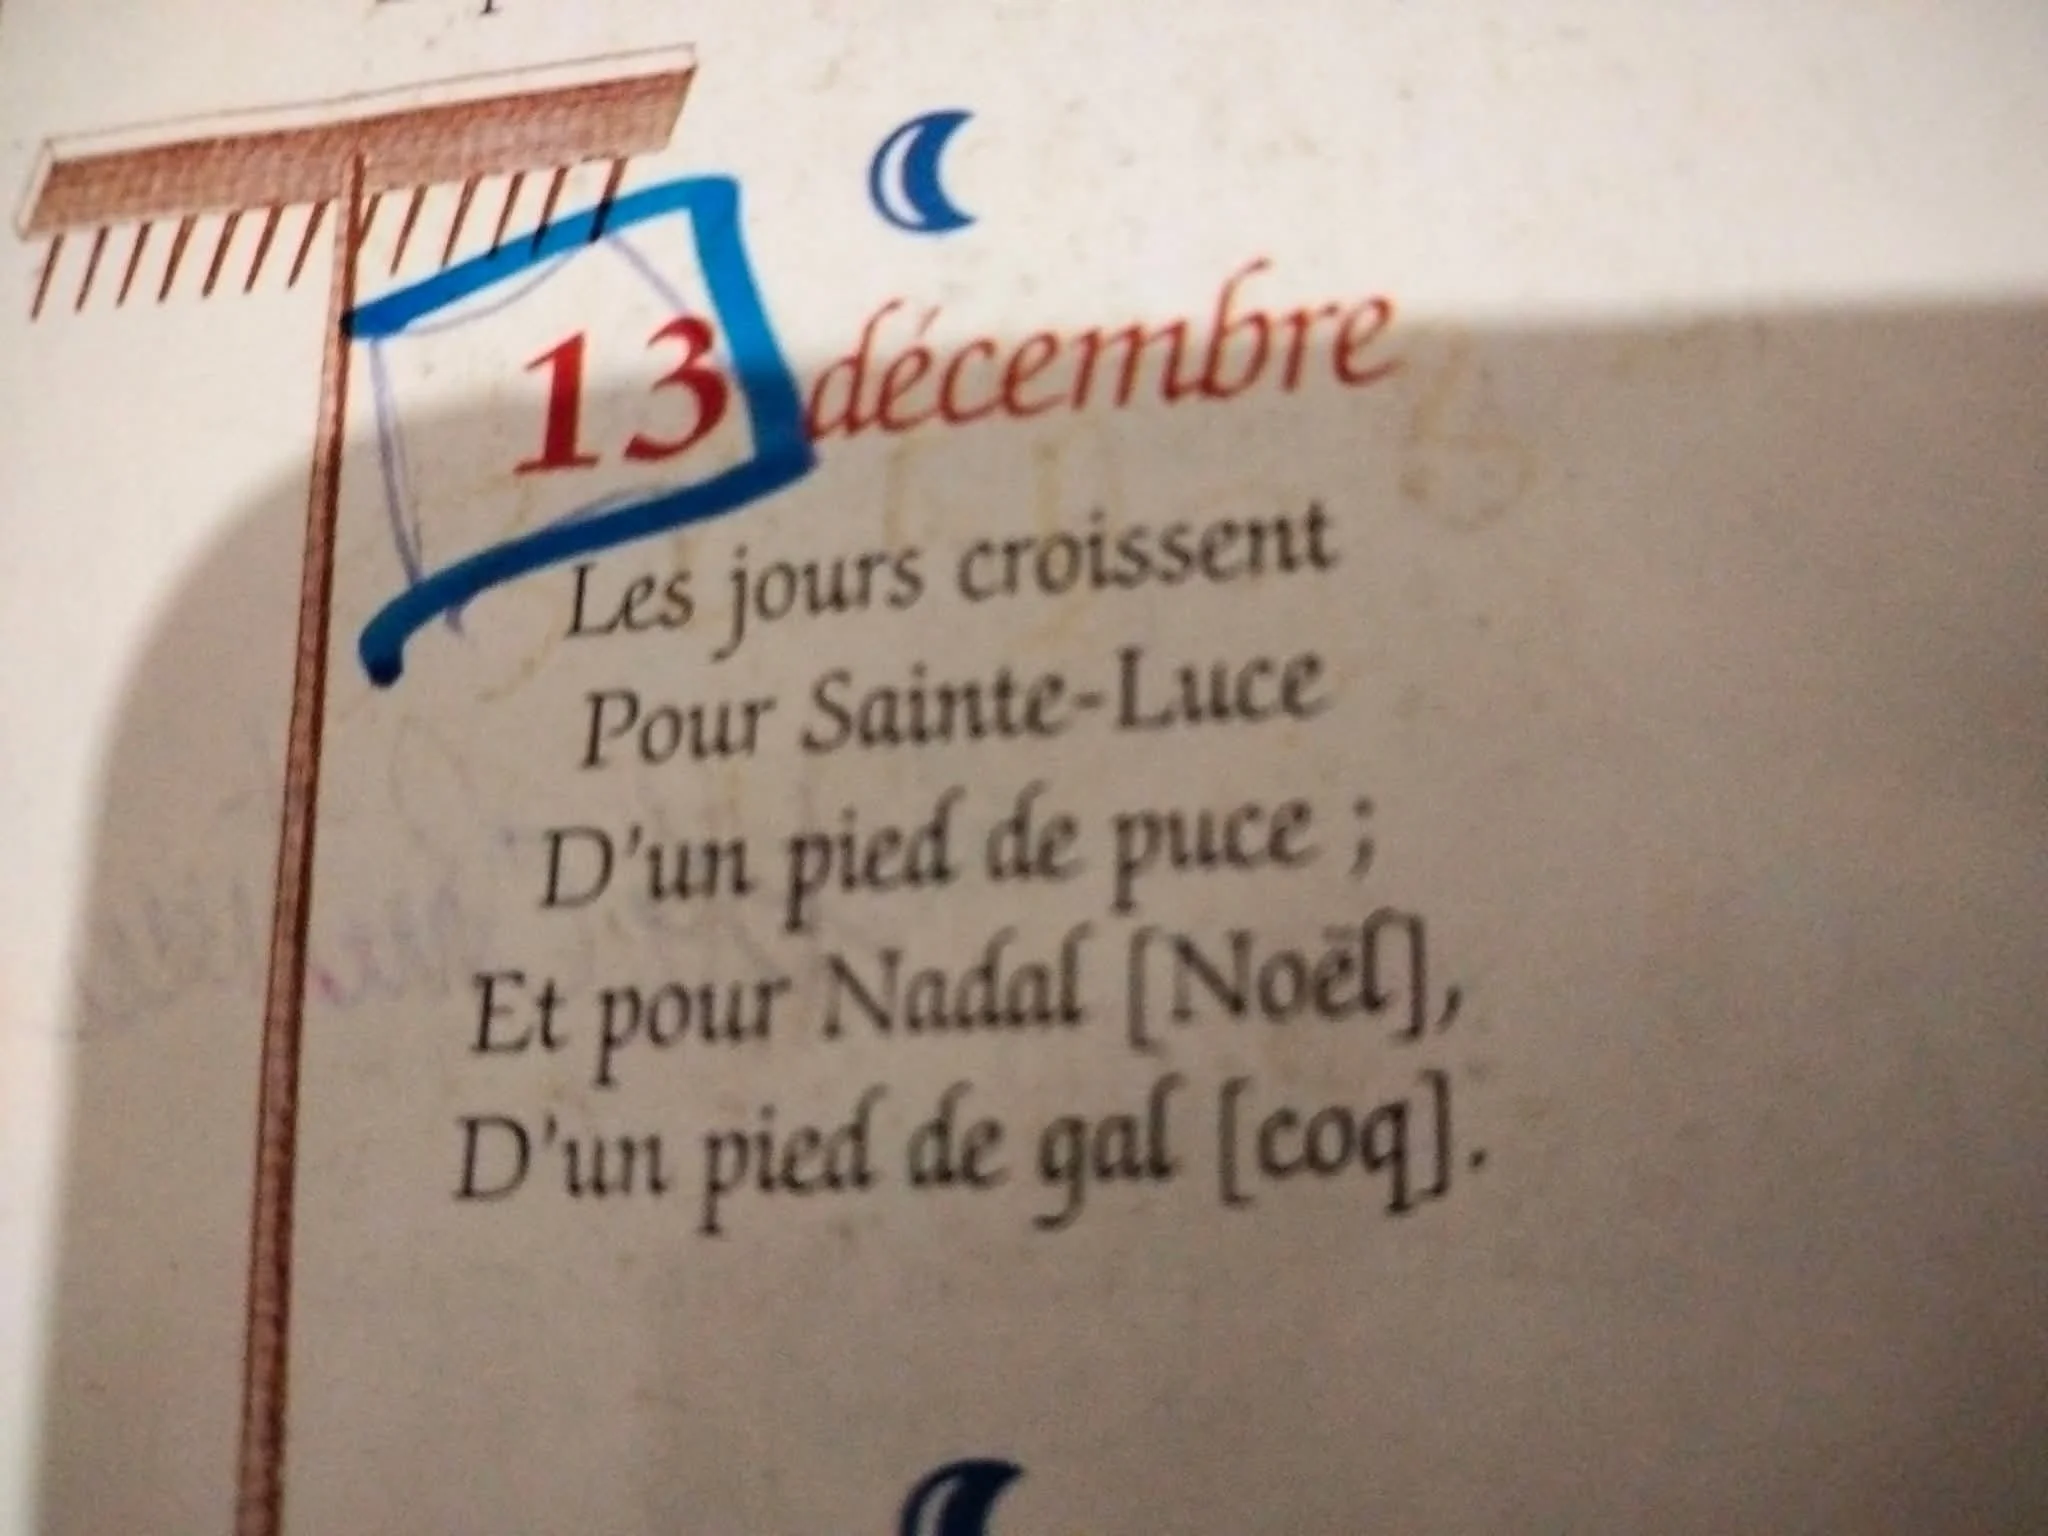 13 décembre
Les jours croissent
Pour Sainte-Luce
D'un pied de puce ;
Et pour Nadal [Noël],
D'un pied de gal [coq].